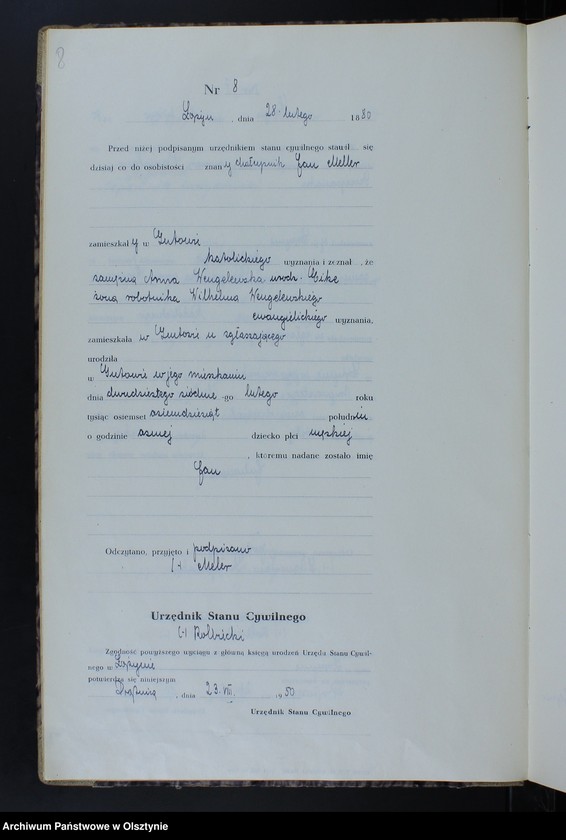 8
Nr 8
Łążyn, dnia 28. lutego 1880
Przed niżej podpisanym urzędnikiem stanu cywilnego stawił się
dzisiaj co do osobistości znany chałupnik Jan Meller
zamieszkały w Gutowie
katolickiego wyznania i zeznał, że
zamężna Anna Wengelewska urodz. Gike
żona robotnika Wilhelma Wengelewskiego
ewangielickiego wyznania,
zamieszkała w Gutowie u zgłaszającego
urodziła
w Gutowie w jego mieszkaniu
dnia dwudziestego siódme-go lutego roku
tysiąc osiemset osiemdziesiąt południu
o godzinie ósmej dziecko płci męskiej
, któremu nadane zostało imię
Jan
Odczytano, przyjęto i podpisano
(-) Meller
Urzędnik Stanu Cywilnego
(-) Rolbiecki
Zgodność powyższego wyciągu z główną księgą urodzeń Urzędu Stanu Cywil-
nego w Łążynie
potwierdza się niniejszym
, dnia 23. VII. 1950
Urzędnik Stanu Cywilnego
Archiwum Państwowe w Olsztynie